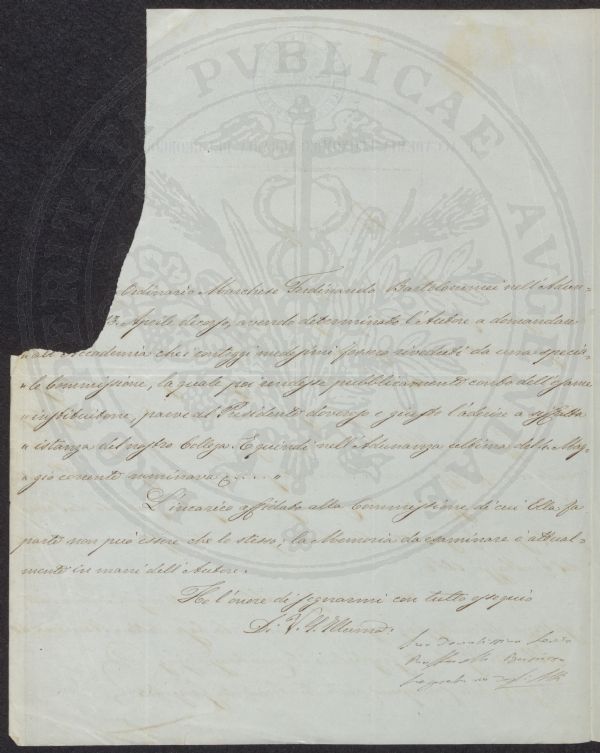 Ordinario Marchese Ferdinando Bartolommei nell'Adun=
Aprile decorso, avendo determinato l'Autore a domandare
" all'Accademia che i conteggi medesimi fossero riveduti da una specia=
" le Commissione, la quale poi rendesse pubblicamente conto dell'esame
" instituitone, parve al Presidente doveroso e giusto l'aderire a siffatta
" istanza del nostro Collega. E quindi nell'Adunanza ultima del 4 Mag=
" gio corrente nominava ....... "
L'incarico affidato alla Commissione di cui Ella fa
parte non può essere che lo stesso; la Memoria da esaminare è attual=
mente in mani dell'Autore.
Ho l'onore di segnarmi con tutto ossequio
Di V. S. Illma.
Suo Devotissimo Servo
Raffaello